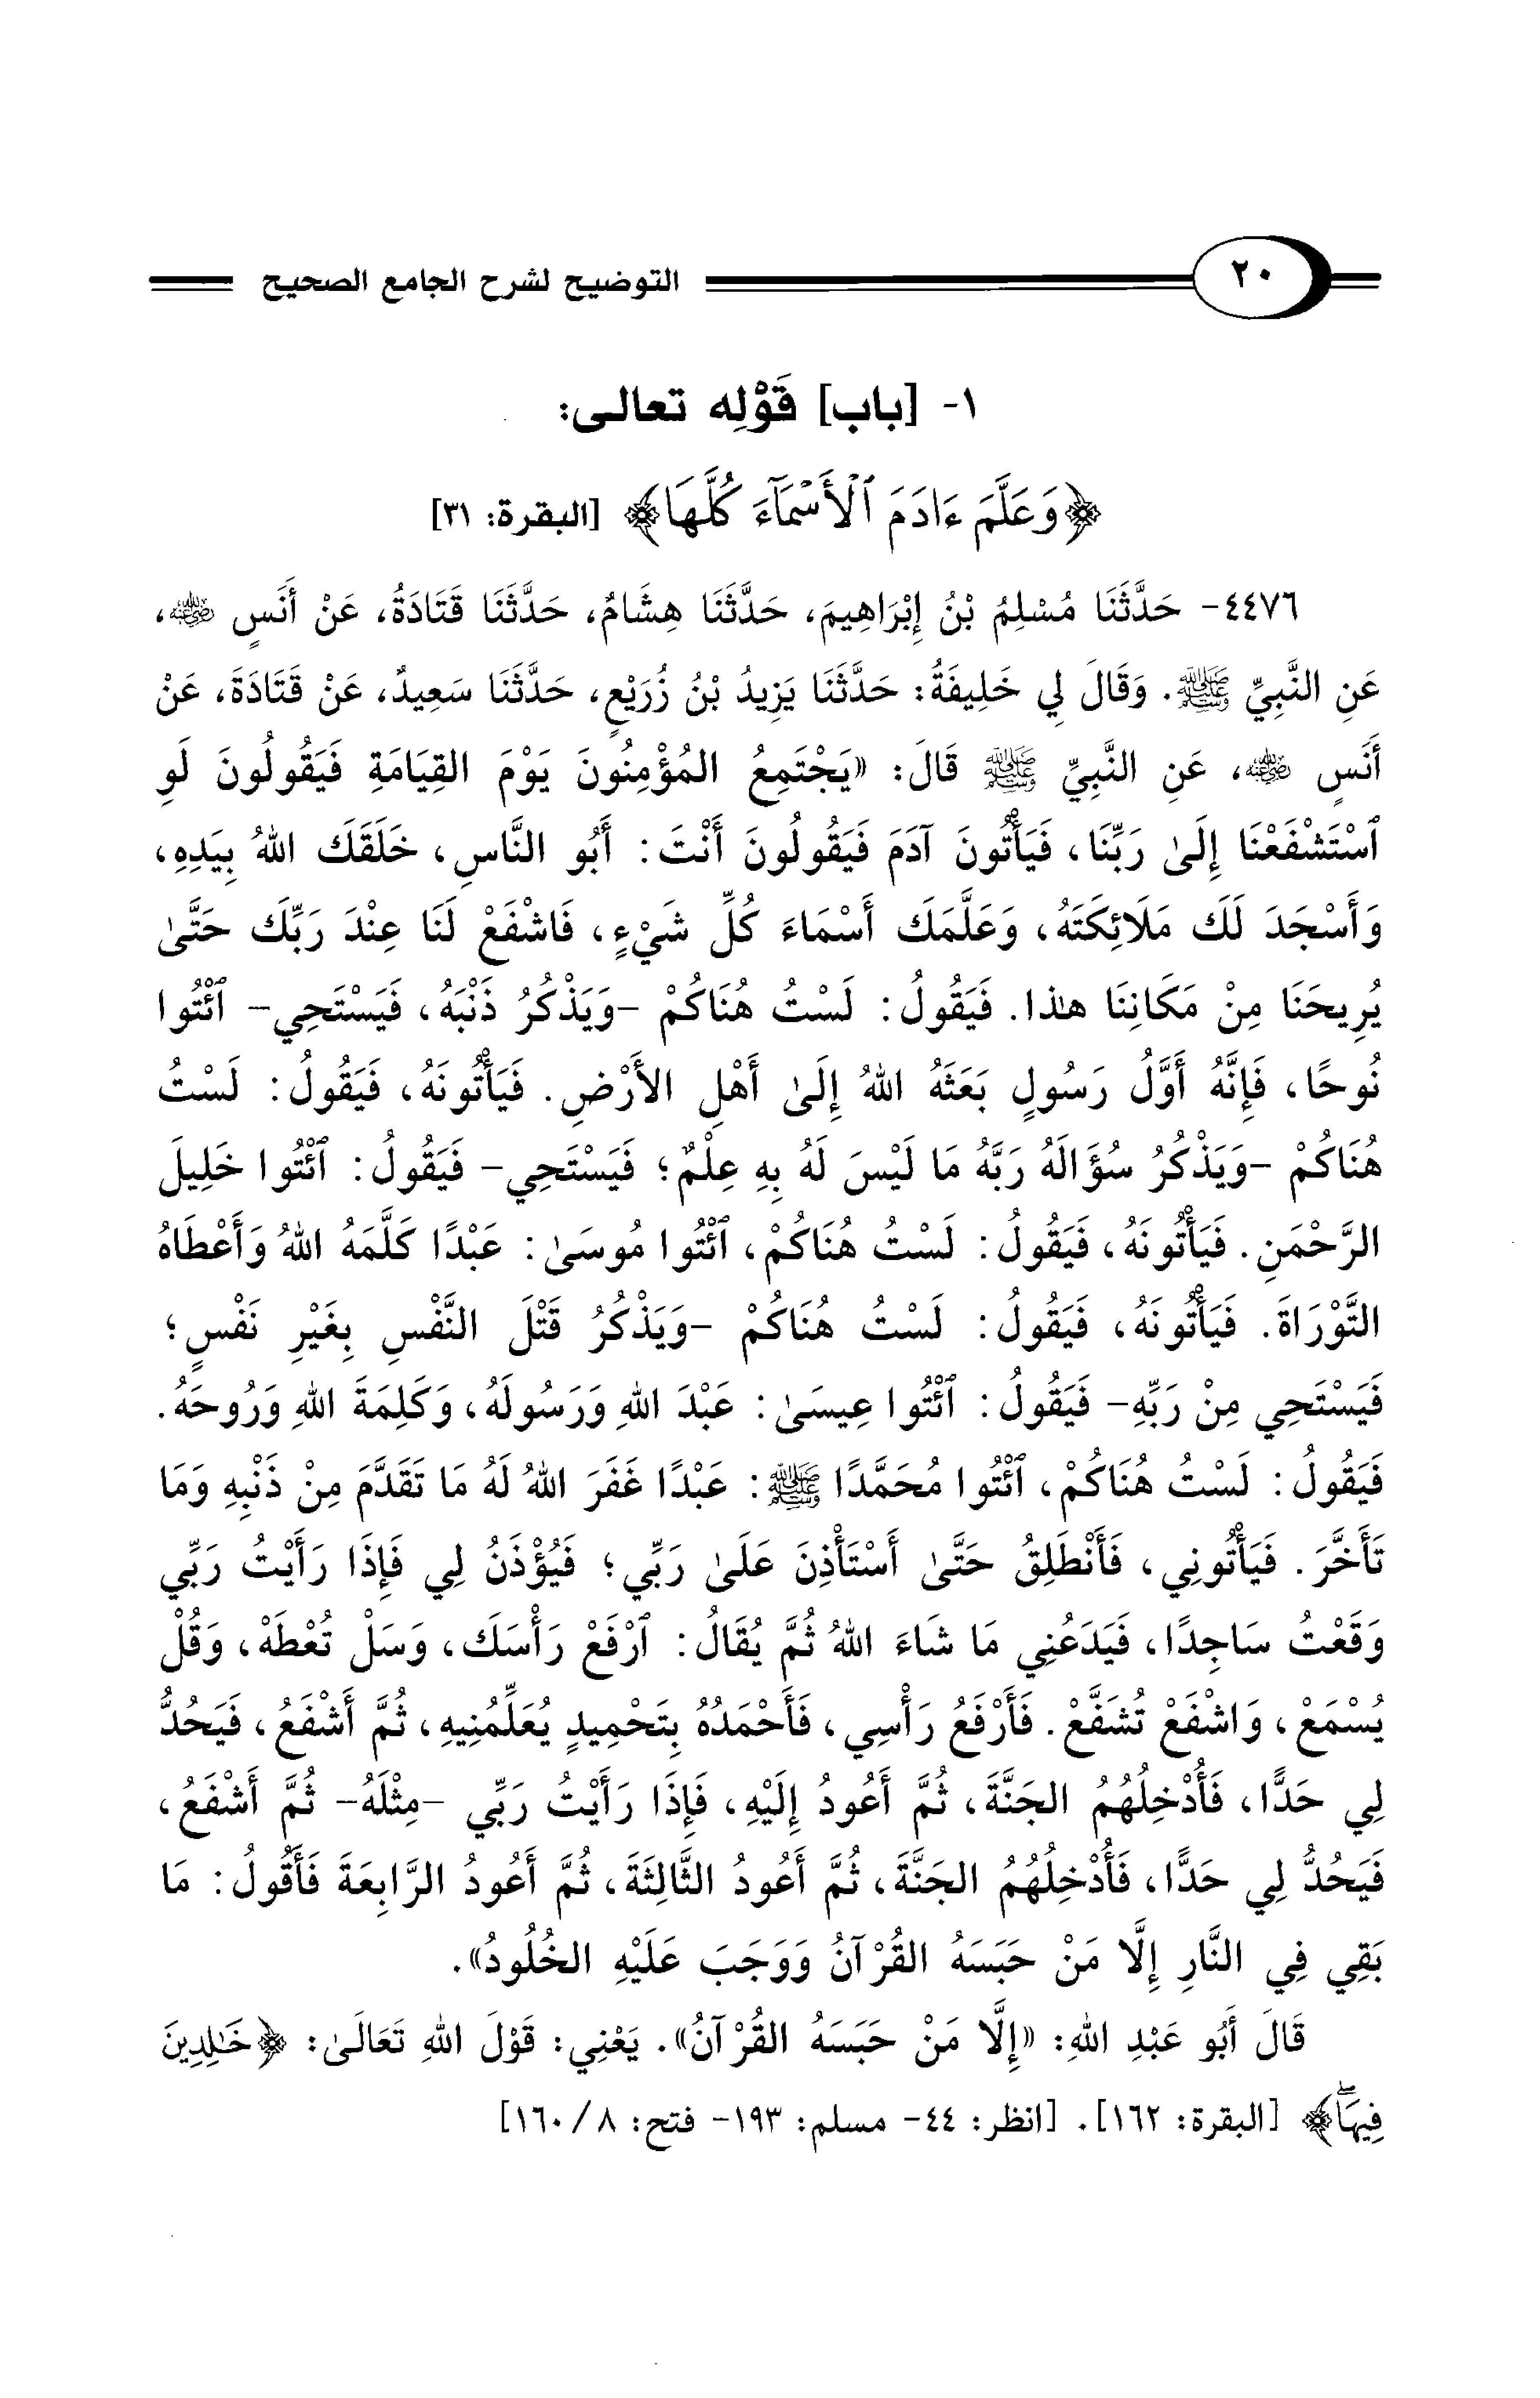 ٢٠
التوضيح لشرح الجامع الصحيح
١- [باب] قَوْلِه تعالى:
﴿وَعَلَّمَ ءَادَمَ ٱلْأَسْمَآءَ كُلَّهَا﴾ [البقرة: ٣١]
٤٤٧٦- حَدَّثَنَا مُسْلِمُ بْنُ إِبْرَاهِيمَ، حَدَّثَنَا هِشَامٌ، حَدَّثَنَا قَتَادَةُ، عَنْ أَنَسٍ رضي الله عنه،
عَنِ النَّبِيِّ ﷺ. وَقَالَ لِي خَلِيفَةُ: حَدَّثَنَا يَزِيدُ بْنُ زُرَيْعٍ، حَدَّثَنَا سَعِيدٌ، عَنْ قَتَادَةَ، عَنْ
أَنَسٍ رضي الله عنه، عَنِ النَّبِيِّ ﷺ قَالَ: «يَجْتَمِعُ المُؤْمِنُونَ يَوْمَ القِيَامَةِ فَيَقُولُونَ لَوِ
ٱسْتَشْفَعْنَا إِلَىٰ رَبِّنَا، فَيَأْتُونَ آدَمَ فَيَقُولُونَ أَنْتَ: أَبُو النَّاسِ، خَلَقَكَ اللهُ بِيَدِهِ،
وَأَسْجَدَ لَكَ مَلَائِكَتَهُ، وَعَلَّمَكَ أَسْمَاءَ كُلِّ شَيْءٍ، فَاشْفَعْ لَنَا عِنْدَ رَبِّكَ حَتَّىٰ
يُرِيحَنَا مِنْ مَكَانِنَا هٰذا. فَيَقُولُ: لَسْتُ هُنَاكُمْ -وَيَذْكُرُ ذَنْبَهُ، فَيَسْتَحِي- ٱئْتُوا
نُوحًا، فَإِنَّهُ أَوَّلُ رَسُولٍ بَعَثَهُ اللهُ إِلَىٰ أَهْلِ الأَرْضِ. فَيَأْتُونَهُ، فَيَقُولُ: لَسْتُ
هُنَاكُمْ -وَيَذْكُرُ سُؤَالَهُ رَبَّهُ مَا لَيْسَ لَهُ بِهِ عِلْمٌ؛ فَيَسْتَحِي- فَيَقُولُ: ٱئْتُوا خَلِيلَ
الرَّحْمَنِ. فَيَأْتُونَهُ، فَيَقُولُ: لَسْتُ هُنَاكُمْ، ٱئْتُوا مُوسَىٰ: عَبْدًا كَلَّمَهُ اللهُ وَأَعْطَاهُ
التَّوْرَاةَ. فَيَأْتُونَهُ، فَيَقُولُ: لَسْتُ هُنَاكُمْ -وَيَذْكُرُ قَتْلَ النَّفْسِ بِغَيْرِ نَفْسٍ؛
فَيَسْتَحِي مِنْ رَبِّهِ- فَيَقُولُ: ٱئْتُوا عِيسَىٰ: عَبْدَ اللهِ وَرَسُولَهُ، وَكَلِمَةَ اللهِ وَرُوحَهُ.
فَيَقُولُ: لَسْتُ هُنَاكُمْ، ٱئْتُوا مُحَمَّدًا ﷺ: عَبْدًا غَفَرَ اللهُ لَهُ مَا تَقَدَّمَ مِنْ ذَنْبِهِ وَمَا
تَأَخَّرَ. فَيَأْتُونِي، فَأَنْطَلِقُ حَتَّىٰ أَسْتَأْذِنَ عَلَىٰ رَبِّي؛ فَيُؤْذَنُ لِي فَإِذَا رَأَيْتُ رَبِّي
وَقَعْتُ سَاجِدًا، فَيَدَعُنِي مَا شَاءَ اللهُ ثُمَّ يُقَالُ: ٱرْفَعْ رَأْسَكَ، وَسَلْ تُعْطَهْ، وَقُلْ
يُسْمَعْ، وَاشْفَعْ تُشَفَّعْ. فَأَرْفَعُ رَأْسِي، فَأَحْمَدُهُ بِتَحْمِيدٍ يُعَلِّمُنِيهِ، ثُمَّ أَشْفَعُ، فَيَحُدُّ
لِي حَدًّا، فَأُدْخِلُهُمُ الجَنَّةَ، ثُمَّ أَعُودُ إِلَيْهِ، فَإِذَا رَأَيْتُ رَبِّي -مِثْلَهُ- ثُمَّ أَشْفَعُ،
فَيَحُدُّ لِي حَدًّا، فَأُدْخِلُهُمُ الجَنَّةَ، ثُمَّ أَعُودُ الثَّالِثَةَ، ثُمَّ أَعُودُ الرَّابِعَةَ فَأَقُولُ: مَا
بَقِي فِي النَّارِ إِلَّا مَنْ حَبَسَهُ القُرْآنُ وَوَجَبَ عَلَيْهِ الخُلُودُ».
قَالَ أَبُو عَبْدِ اللهِ: «إِلَّا مَنْ حَبَسَهُ القُرْآنُ». يَعْنِي: قَوْلَ اللهِ تَعَالَىٰ: ﴿خَٰلِدِينَ
فِيهَاۖ﴾ [البقرة: ١٦٢]. [انظر: ٤٤- مسلم: ١٩٣- فتح: ٨/ ١٦٠]